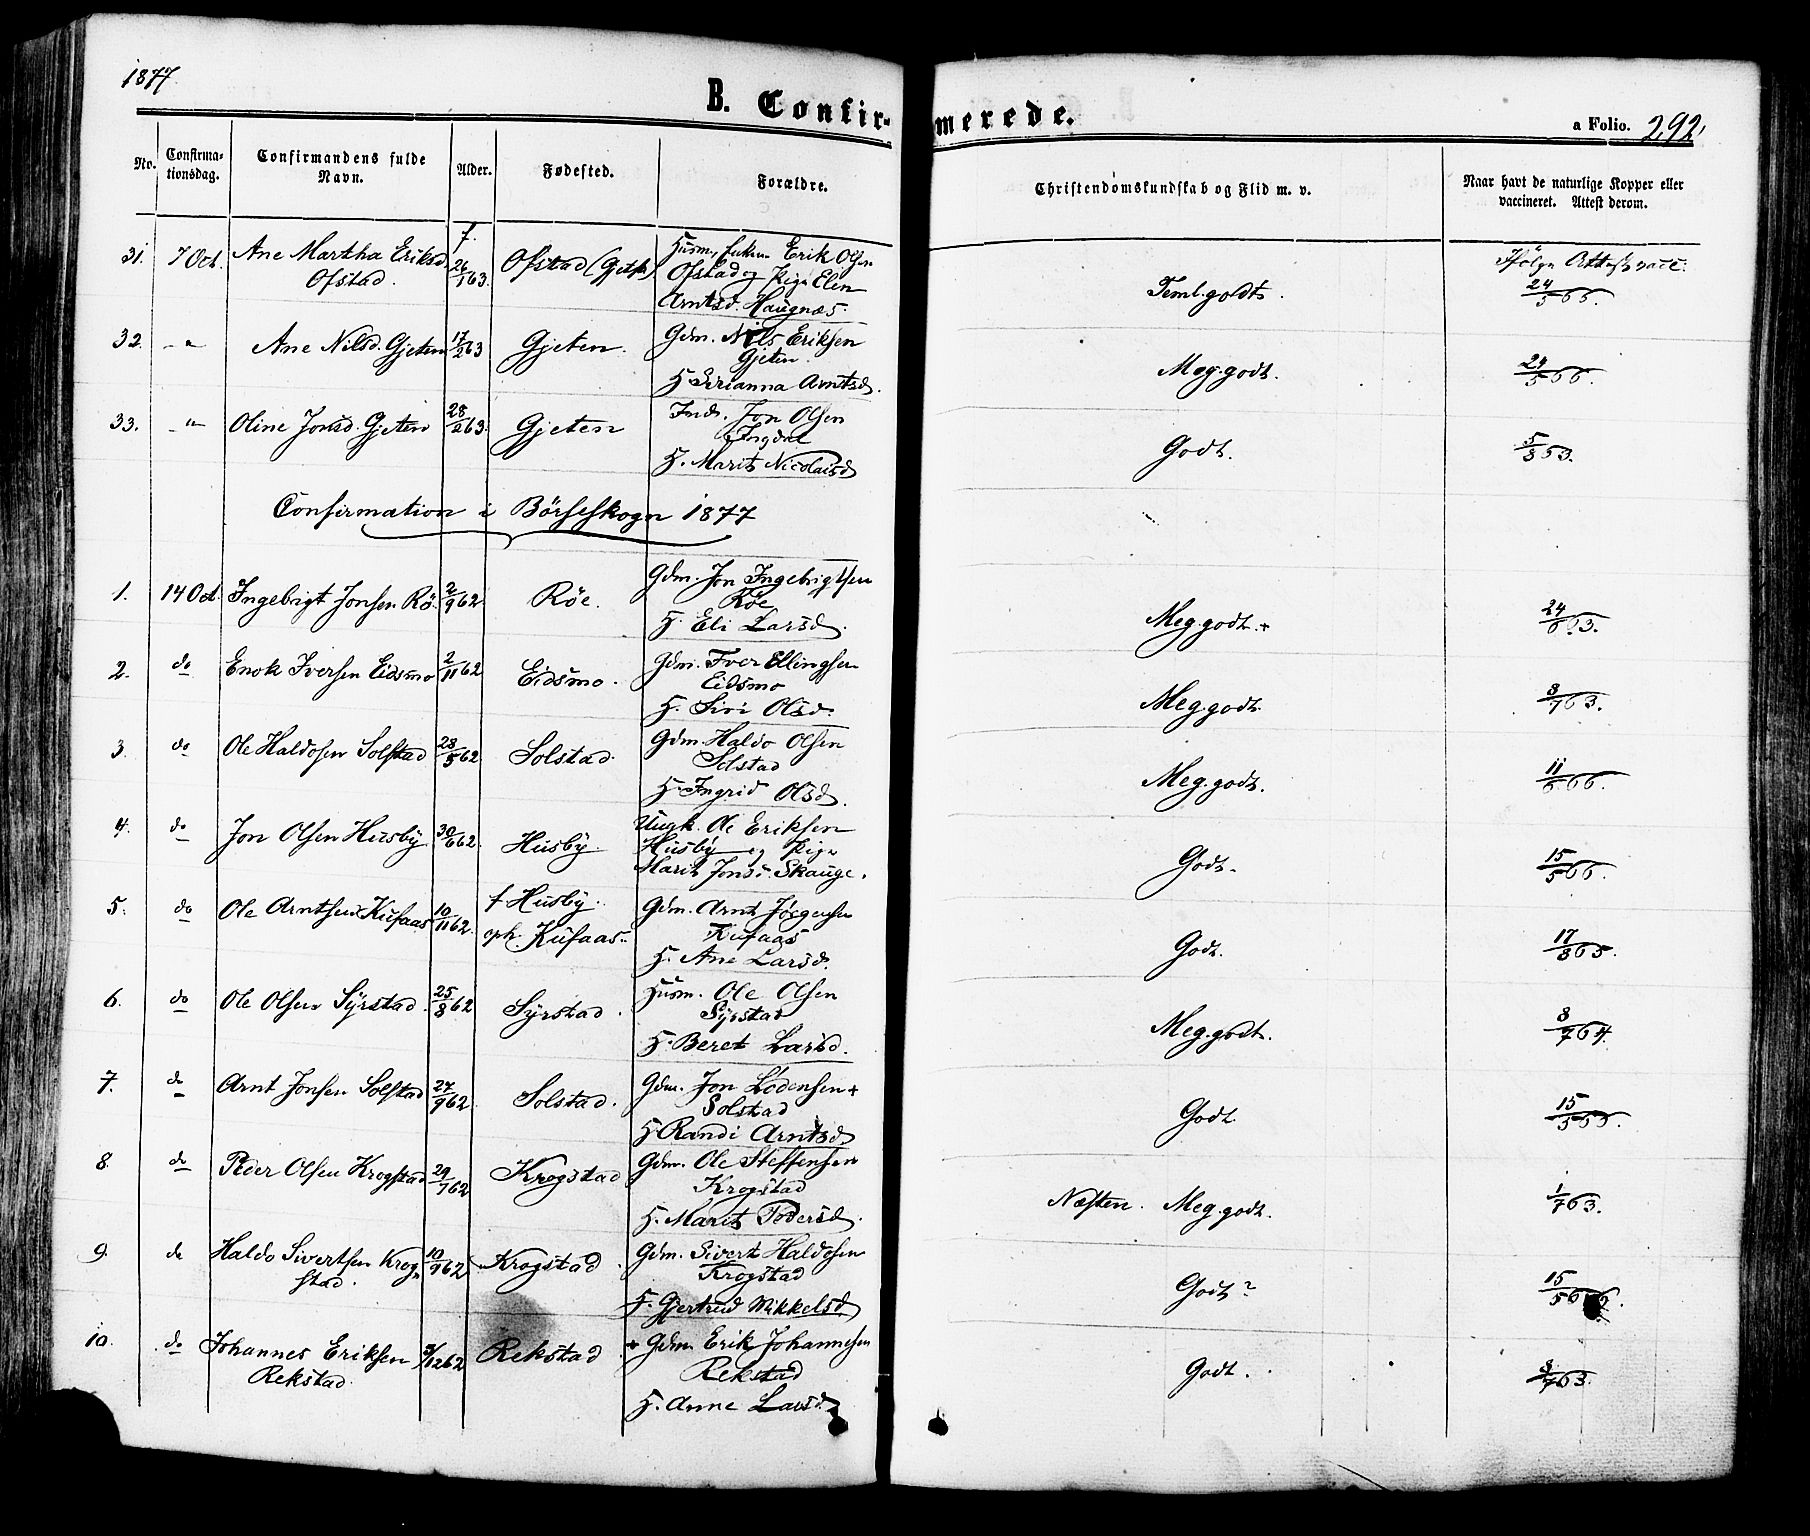 1877
B. Confirmerede.
a Folio. 292,
No. Confirmationsdag. Confirmandens fulde Navn. Alder. Fødested. Forældre. Christendomskundskab og Flid m. v. Naar havt de naturlige Kopper eller vaccineret. Attest derom.
f.
31. 7 Oct. Ane Martha Eriksd. 26/1 63. Ofstad (Gjeth) Husm. Erik Olsen
Ofstad. Ofstad og Pige Elen
Arntsd. Haugnæs. Teml. godt. 24/5 66.
32. -"- Ane Nilsd. Gjeten 17/2 63 Gjeten. Gdm. Nils Eriksen
Gjeten.
H. Sirianna Arntsd. Meg. godt. 24/5 66.
33. -"- Oline Jonsd. Gjeten 28/2 63. Gjeten Ind. Jon Olsen
Ingdal
H. Marit Nicolaisd Godt. 5/8 53.
Confirmation i Börseskogn 1877
1. 14 Oct. Ingebrigt Jonsen Rö. 2/9 62 Röe. Gdm. Jon Ingebrigtsen
Röe
H. Eli Larsd. Meg. godt.+ 24/6 63.
2. do Enok Iversen Eidsmo 2/11 62 Eidsmo. Gdm. Iver Ellingsen
Eidsmo
H. Siri Olsd. Meg. godt. 8/7 63.
3. do Ole Haldosen Solstad 28/5 62 Solstad. Gdm. Haldo Olsen
Solstad
H. Ingrid Olsd. Meg. godt. 11/6 66.
4. do Jon Olsen Husby 30/6 62. Husby. Ungk. Ole Eriksen
Husby og Pige
Marit Jonsd. Skauge. Godt. 15/5 66.
5. do Ole Arntsen Kufaas 10/11 62. f Husby. Gdm. Arnt Jörgensen
oph. Kufaas. Kufaas
H. Ane Larsd. Godt. 17/8 65.
6. do Ole Olsen Syrstad. 25/8 62 Syrstad. Husm. Ole Olsen
Syrstad
H. Beret Larsd. Meg. godt. 8/7 64.
7. do Arnt Jonsen Solstad 27/9 62. Solstad. Gdm. Jon Lodensen +
Solstad
H. Randi Arntsd. Godt. 15/5
8. do Peder Olsen Krogstad 29/7 62 Krogstad Gdm. Ole Steffensen
Krogstad
H. Marit Pedersd. Næsten. Meg. godt. 1/7 63.
9. do Haldo Sivertsen Krog 10/9 62 Krogstad. Gdm. Sivert Haldosen
stad. Krogstad
H. Gjertrud Mikkelsd Godt? 15/5
10. do Johannes Eriksen 3/12 62 Rekstad + Gdm. Erik Johannesen
Rekstad. Rekstad
H. Anne Larsd. Godt. 8/7 63.